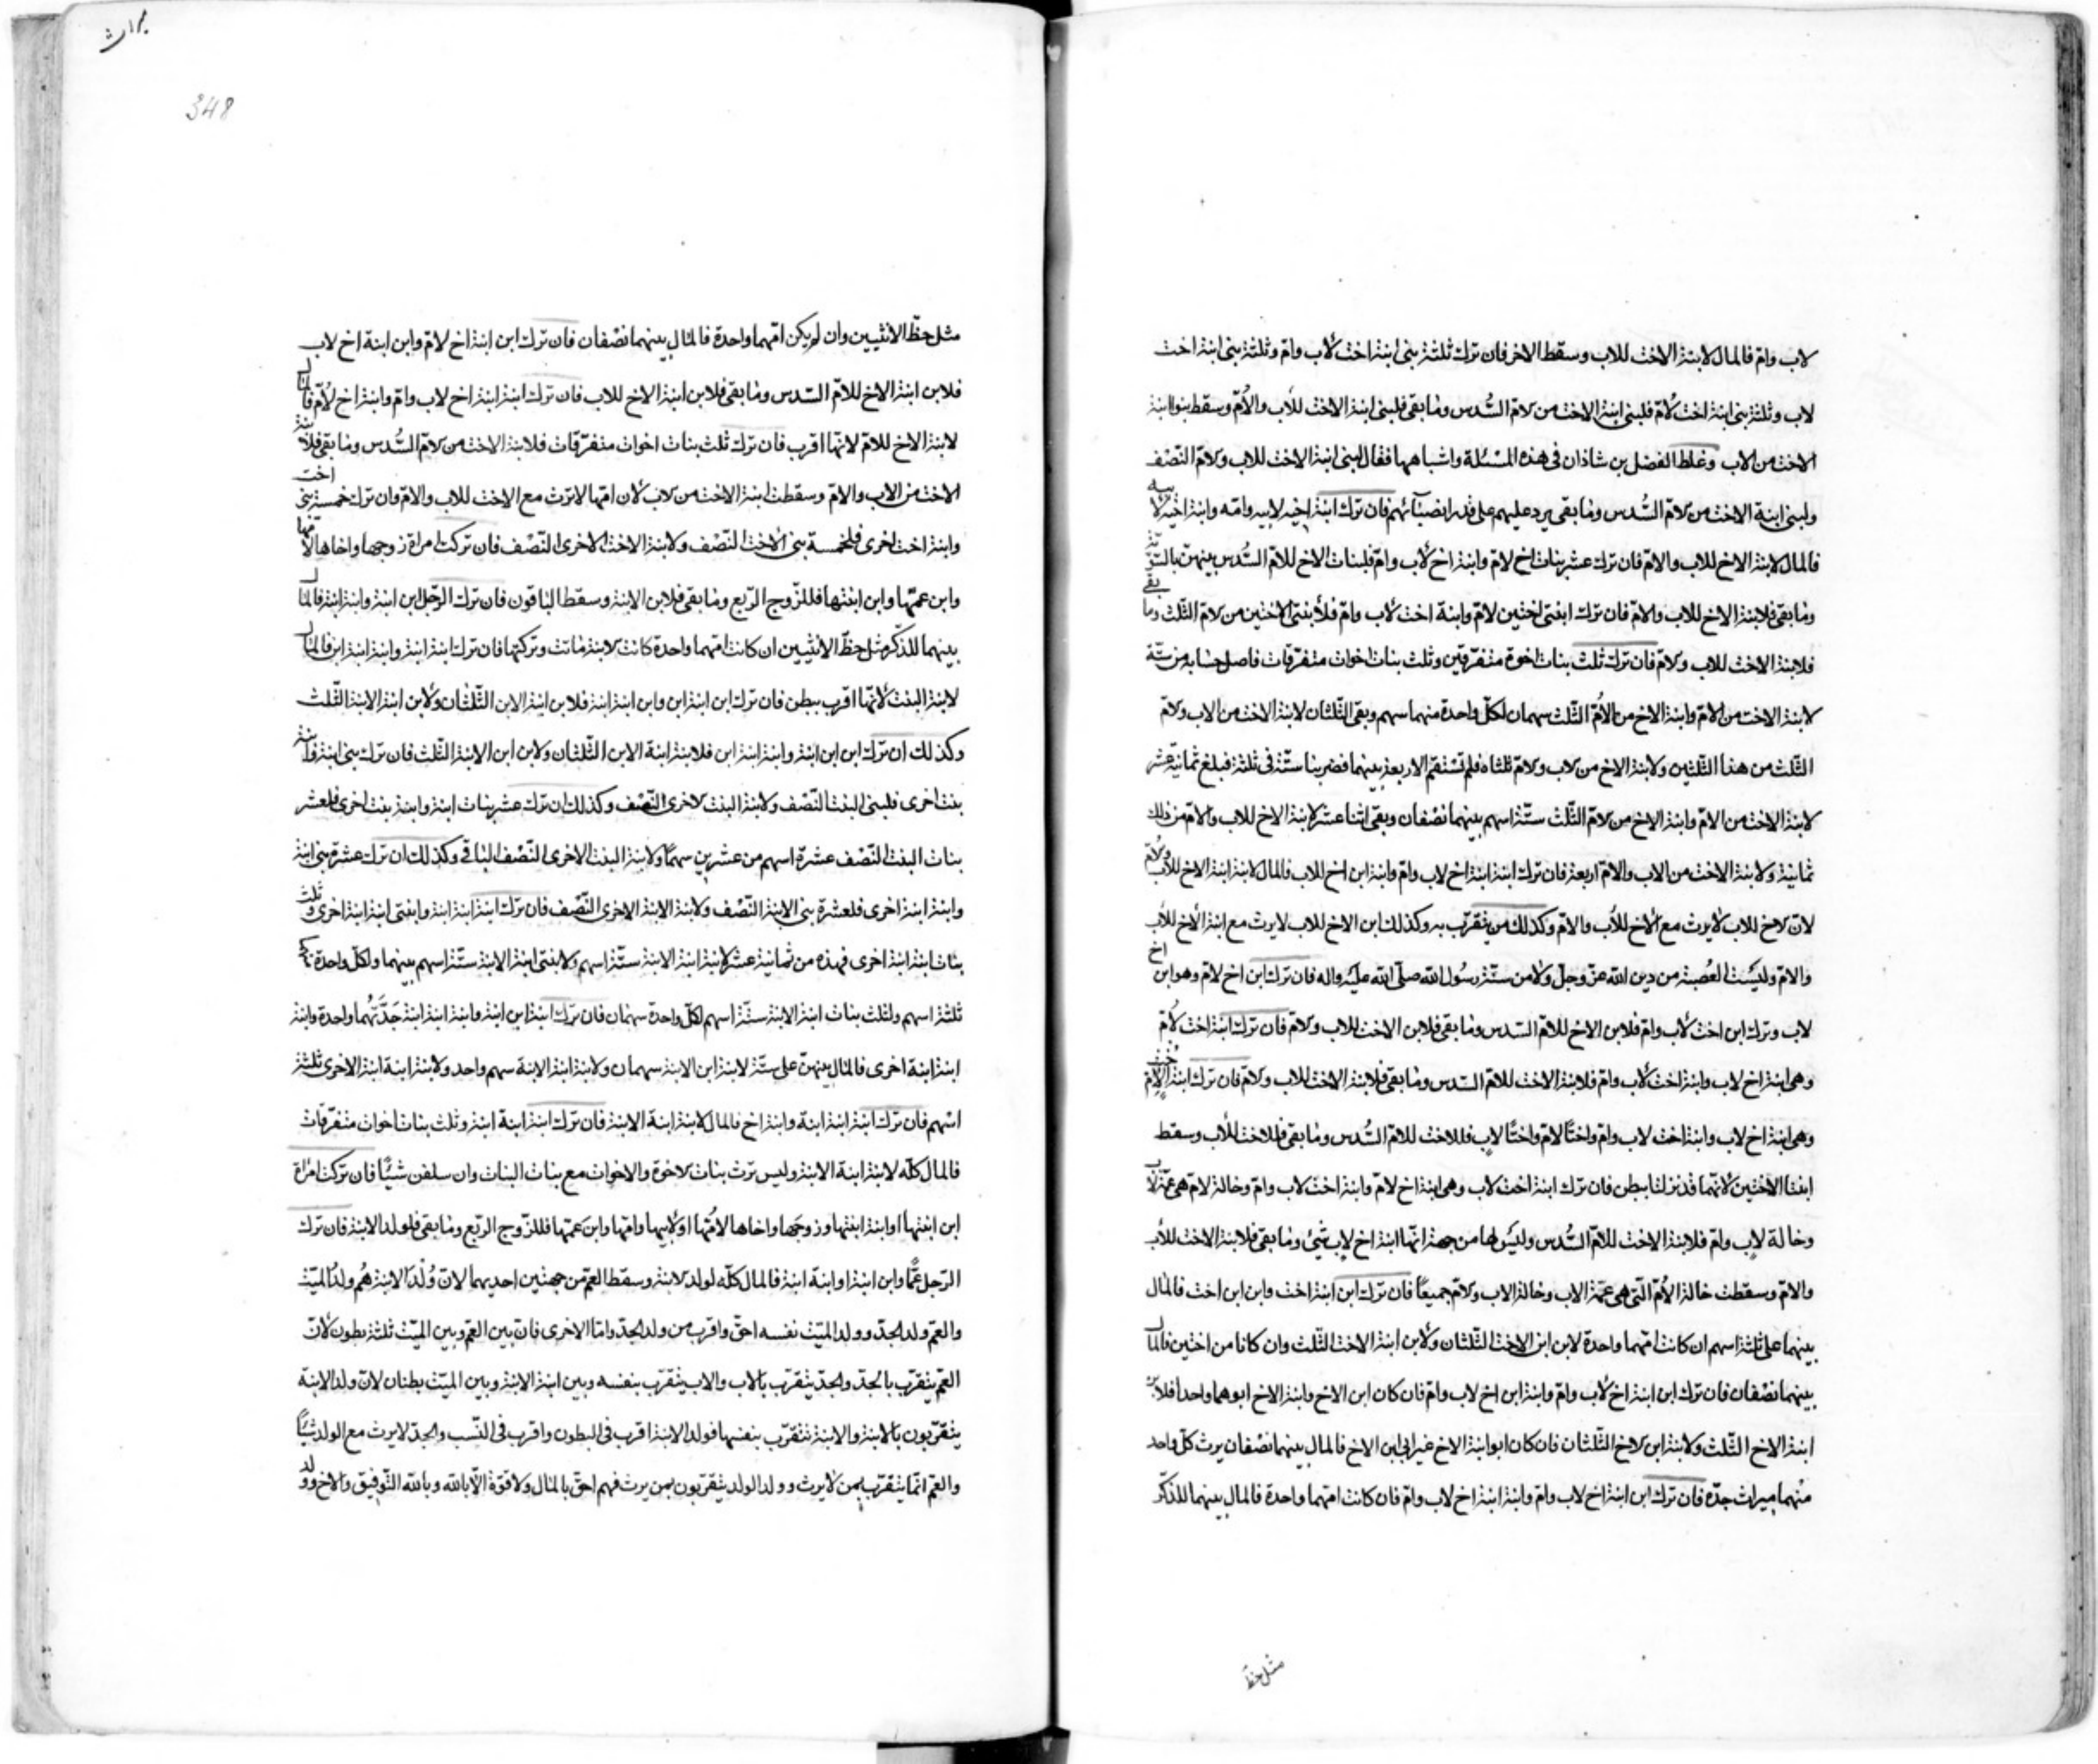 لاب وامّ فالمال لابنة الاخت للاب وسقط الاخر فان ترك ثلثة بنى ابنة اخت لأب وامّ وثلثة بنى ابنة اخت
لاب وثلثة بنى ابنة اخت لأمّ فلبنى ابنة الاخت من لامّ السُّدس وما بقى فلبنى ابنة الاخت للأب والأمّ وسقط بنوا ابنة
الاخت من لاب وغلط الفضل بن شاذان فى هذه المسئلة واشباهها فقال لبنى ابنة الاخت للاب ولامّ النّصف
ولبنى ابنة الاخت من لامّ السُّدس وما بقى يردّ عليهم على قدر انصبآئهم فان ترك ابنة اخيه لابيه وامّه وابنة اخيه لابيه
فالمال لابنة الاخ للاب والامّ فان ترك عشر بنات اخ لامّ وابنة اخ لأب وامّ فلبنات الاخ للامّ السُّدس بينهنّ بالسّويّة
وما بقى فلابنة الاخ للاب ولامّ فان ترك ابنتى اختين لامّ وابنة اخت لأب وامّ فلأبنتى الاختين من لامّ الثّلث وما بقى
فلابنة الاخت للاب ولامّ فان ترك ثلث بنات اخوة متفرّقين وثلث بنات اخوات متفرّقات فاصل حسابه من ستّة
لابنة الاخت من الامّ وابنة الاخ من الأمّ الثّلث سهمان لكلّ واحدة منهما سهم وبقى الثّلثان لابنة الاخت من الاب ولامّ
الثّلث من هذا الثّلثين ولابنة الاخ من لاب ولامّ ثلثاه فلم تستقم الاربعة بينهما فضربنا ستّة فى ثلثة فبلغ ثمانية عشر
لابنة الاخت من الامّ وابنة الاخ من لامّ الثّلث ستّة اسهم بينهما نصفان وبقى اثنا عشر لابنة الاخ للاب والامّ من ذلك
ثمانية ولابنة الاخت من الاب والامّ اربعة فان ترك ابنة ابنة اخ لاب وامّ وابنة ابن اخ للاب فالمال لابنة ابنة الاخ للأب ولأمّ
لانّ لاخ للاب لايرث مع الاخ للأب والامّ وكذلك من يتقرّب به وكذلك ابن الاخ للاب لايرث مع ابنة الأخ للأب
والامّ وليست العُصبة من دين الله عزّ وجلّ ولا من سنّة رسول الله صلّى الله عليه واله فان ترك ابن اخ لامّ وهو ابن اخ
لاب وترك ابن اخت لأب وامّ فلابن الاخ للامّ السّدس وما بقى فلابن الاخت للاب ولامّ فان ترك ابنة اخت لأمّ
وهى ابنة اخ لاب وابنة اخت لأب وامّ فلابنة الاخت للامّ السّدس وما بقى فلابنة الاخت للاب ولامّ فان ترك ابنة اخت لامّ
وهى ابنة اخ لاب وابنة اخت لاب وامّ واختًا لامّ واختًا لاب فللاخت للامّ السُّدس وما بقى فللاخت للأب وسقط
ابنتا الاختين لانّهما قد نزلتا ببطن فان ترك ابنة اخت لاب وهى ابنة اخ لامّ وابنة اخت لاب وامّ وخالة لامّ هى عمّة لاب
وخالة لاب وامّ فلابنة الاخت للامّ السُّدس وليس لها من جهة انّها ابنة اخ لاب شئ وما بقى فلابنة الاخت للأب
والامّ وسقطت خالة الأمّ الّتى هى عمّة الاب وخالة الاب ولامّ جميعًا فان ترك ابن ابنة اخت وابن ابن اخت فالمال
بينهما على ثلثة اسهم ان كانت امّهما واحدة لابن ابن الاخت الثّلثان ولأبن ابنة الاخت الثّلث وان كانا من اختين فالمال
بينهما نصفان فان ترك ابن ابنة اخ لأب وامّ وابنة ابن اخ لاب وامّ فان كان ابن الاخ وابنة الاخ ابوهما واحدا فلابن
ابنة الاخ الثّلث ولابنة ابن لاخ الثّلثان فان كان ابو ابنة الاخ غير ابى ابن الاخ فالمال بينهما نصفان يرث كلّ واحد
منهما ميراث جدّه فان ترك ابن ابنة اخ لاب وامّ وابنة ابنة اخ لاب وامّ فان كانت امّهما واحدة فالمال بينهما للذّكر
مثل حظّ
348
مثل حظّ الانثيين وان لم يكن امّهما واحدة فالمال بينهما نصفان فان ترك ابن ابنة اخ لامّ وابن ابنة اخ لاب
فلابن ابنة الاخ للامّ السّدس وما بقى فلابن ابنة الاخ للاب فان ترك ابنة ابنة اخ لاب وامّ وابنة اخ لأمّ فالمال
لابنة الاخ للامّ لانّها اقرب فان ترك ثلث بنات اخوات متفرّقات فلابنة الاخت من لامّ السُّدس وما بقى فلابنة
الاخت من الاب والامّ وسقطت ابنة الاخت من لاب لان امّها لاترث مع الاخت للاب والامّ فان ترك خمسة بنى اخت
وابنة اخت اخرى فلخمسة بنى الأخت النّصف ولابنة الاخت الاخرى النّصف فان تركت امراة زوجها واخاها لامّها
وابن عمّها وابن ابنتها فللزّوج الرّبع وما بقى فلابن الابنة وسقط الباقون فان ترك الرّجل ابن ابنة وابنة ابنة فالمال
بينهما للذّكر مثل حظّ الانثيين ان كانت امّهما واحدة كانت لابنة ماتت وتركتهما فان ترك ابنة ابنة وابنة ابنة ابن فالمال
لابنة البنت لأنّها اقرب ببطن فان ترك ابن ابنة ابن وابن ابنة ابنة فلابن ابنة الابن الثّلثان ولأبن ابنة الابنة الثّلث
وكذلك ان ترك ابن ابن ابنة وابنة ابنة ابن فلابنة ابنة الابن الثّلثان ولابن ابن الابنة الثّلث فان ترك بنى ابنة وابنة
بنت اخرى فلبنى البنت النّصف ولابنة البنت لاخرى النّصف وكذلك ان ترك عشر بنات ابنة وابنة بنت اخرى فلعشر
بنات البنت النّصف عشرة اسهم من عشرين سهمًا ولابنة البنت الاخرى النّصف الباقى وكذلك ان ترك عشرة بنى ابنة
وابنة ابنة اخرى فلعشرة بنى الابنة النّصف ولابنة الابنة الاخرى النّصف فان ترك ابنة ابنة ابنة وابنتى ابنة ابنة اخرى وثلث
بنات ابنة ابنة اخرى فهذه من ثمانية عشر لابنة ابنة الابنة ستّة اسهم ولابنتى ابنة الابنة ستّة اسهم بينهما ولكلّ واحدة
ثلثة اسهم ولثلث بنات ابنة الابنة ستّة اسهم لكلّ واحدة سهمان فان ترك ابنة ابن ابنة وابنة ابنة ابنة جَدَّتُهُما واحدة وابنة
ابنة ابنة اخرى فالمال بينهنّ على ستّة لابنة ابن الابنة سهمان ولابنة ابنة الابنة سهم واحد ولابنة ابنة ابنة الاخرى ثلثة
اسهم فان ترك ابنة ابنة ابنة وابنة اخ فالمال لابنة ابنة الابنة فان ترك ابنة ابنة ابنة وثلث بنات اخوات متفرّقات
فالمال كلّه لابنة ابنة الابنة وليس ترث بنات لاخوة والاخوات مع بنات البنات وان سلفن شيئًا فان تركت امراة
ابن ابنتها او ابنة ابنتها وزوجها واخاها لامّها او لابيها وامّها وابن عمّها فللزّوج الرّبع وما بقى فلولد الابنة فان ترك
الرّجل عمًّا وابن ابنة او ابنة ابنة فالمال كلّه لولد لابنة وسقط العمّ من جهتين احديهما لانّ وُلْد الابنة هُم ولد الميّت
والعمّ ولد الجدّ وولد الميّت نفسه احقّ واقرب من ولد الجدّ وامّا الاخرى فانّ بين العمّ وبين الميّت ثلثة بطون لأنّ
العمّ يتقرّب بالجدّ والجدّ يتقرّب بالاب والاب يتقرّب بنفسه وبين ابنة الابنة وبين الميّت بطنان لانّ ولد الابنة
يتقرّبون بالابنة والابنة تتقرّب بنفسها فولد الابنة اقرب فى البطون واقرب فى النّسب والجدّ لايرث مع الولد شيئًا
والعمّ انّما يتقرّب بمن لايرث وولد الولد يتقرّبون بمن يرث فهم احقّ بالمال ولا قوّة الّا بالله وبالله التّوفيق والاخ وولد